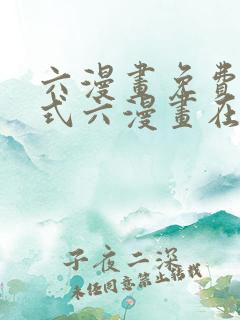 六漫畫免費
式六漫畫在
子夜二深
未任同意禁止轉載